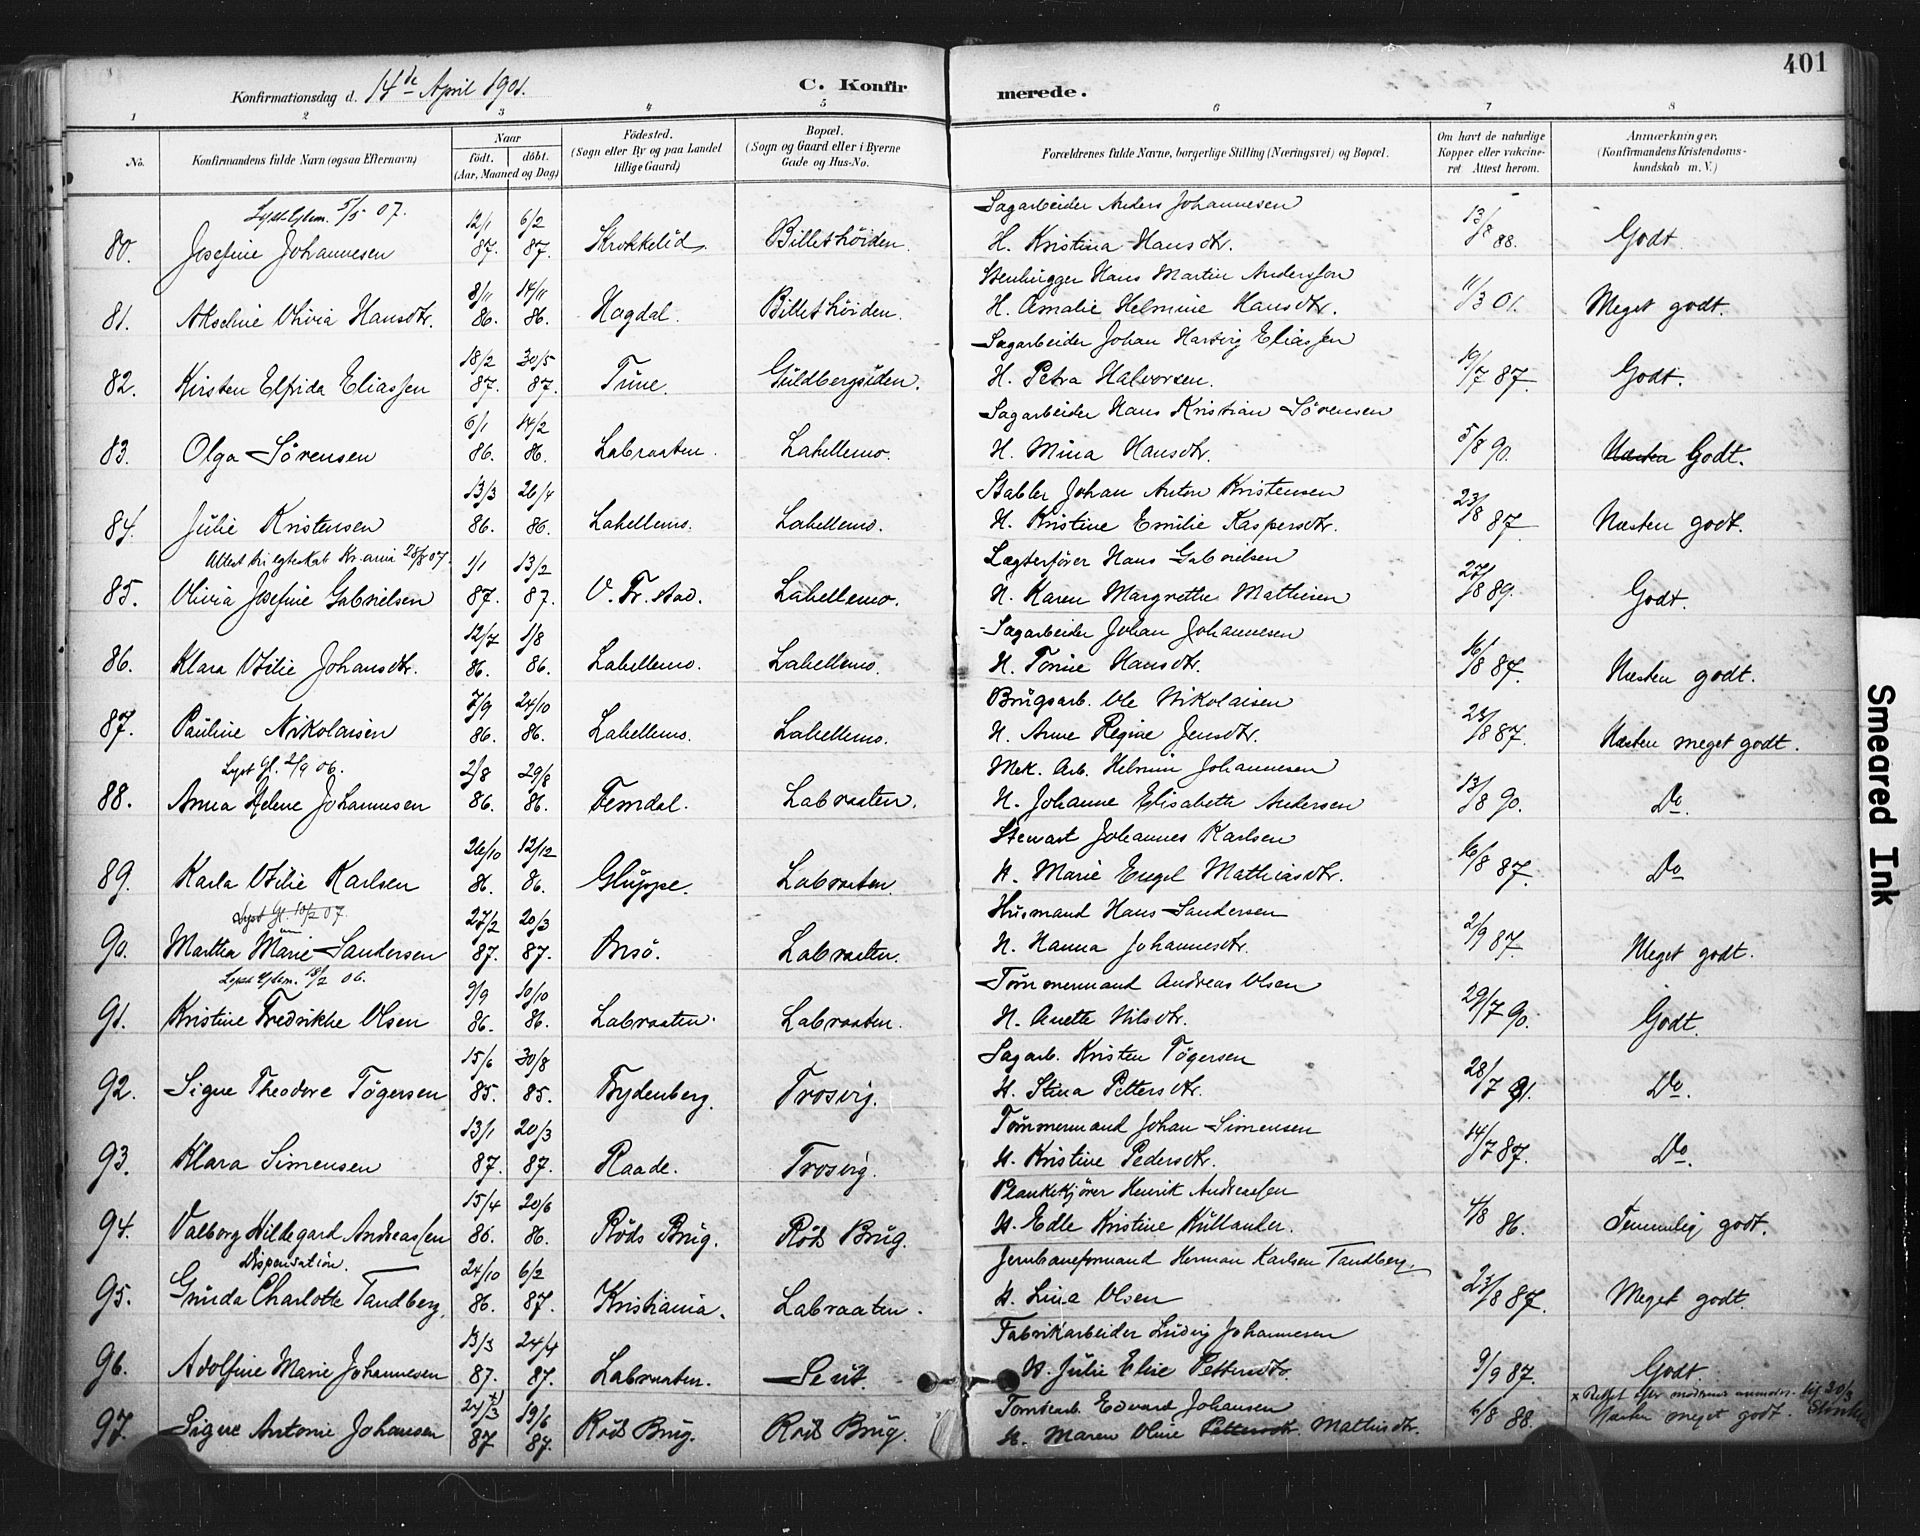 401
Konfirmationsdag d. 14de April 1901.
C. Konfirmerede.
1 2 3 4 5 6 7 8
No. Konfirmandens fulde Navn (ogsaa Efternavn) Naar født. døbt. (Aar, Maaned og Dag) Fødested. (Sogn eller By og paa Landet tillige Gaard) Bopæl. (Sogn og Gaard eller i Byerne Gade og Hus-No. Forældrenes fulde Navne, borgerlige Stilling (Næringsvei) og Bopæl. Om havt de naturlige Kopper eller vakcineret Attest herom. Anmærkninger. (Konfirmandens Kristendomskundskab m. V.)
Lyst Glem. 5/5 07. 12/1 6/2 Sagarbeider Anders Johannesen 13/8
80. Josefine Johannesen 87. 87. Skrokkelid. Billethöiden. H. Kristina Hansdtr. 88. Godt.
8/11 14/11 Stenhugger Hans Martin Anderssen
81. Akseline Olivia Hansdtr. 86. 86. Hagdal. Billethöiden. H. Amalie Helmine Hansdtr. 11/3 01. Meget godt.
18/2 30/5 Sagarbeider Johan Hartvig Eliassen
82. Kirsten Elfrida Eliassen 87. 87. Tune. Guldbergsiden. H. Petra Halvorsen. 19/7 87. Godt.
6/1 14/2 Sagarbeider Hans Kristian Sörensen
83. Olga Sörensen 86. 86. Labraaten. Lahellemo. H. Mina Hansdtr. 5/8 90. Næsten Godt.
13/3 26/4 Stabler Johan Anton Kristensen
84. Julie Kristensen 86. 86. Lahellemo. Lahellemo. H. Kristine Emilie Kaspersdtr. 23/8 87. Næsten godt.
Attest til egteskab Kr.ania 28/8 07. 1/1 13/2 Lægterfører Hans Gabrielsen
85. Olivia Josefine Gabrielsen 87. 87. V. Fr.stad. Lahellemo. H. Karen Margrethe Mathisen 27/8 89. Godt.
12/7 1/8 Sagarbeider Johan Johannesen
86. Klara Otilie Johansdtr. 86. 86. Lahellemo. Lahellemo. H. Tomine Hansdtr. 16/8 87. Næsten godt.
7/9 24/10 Brugsarb. Ole Nikolaisen
87. Pauline Nikolaisen 86. 86. Lahellemo. Lahellemo. H. Anne Regine Jensdtr. 23/8 87. Næsten meget godt.
Lyst Gl. 2/9 06. 2/8 29/8 Mek. Arb. Helmin Johannesen
88. Anna Helene Johannesen 86. 86. Femdal. Labraaten. H. Johanne Elisabeth Andersen 13/8 90. Do.
26/10 12/12 Stewart Johannes Karlsen
89. Karla Otilie Karlsen 86. 86. Gluppe. Labraaten. H. Marie Engel Mathiasdtr. 16/8 87. Do
Lyst Gl. 10/2 07. 27/2 20/3 Husmand Hans Sandersen
90. Martha Marie Sandersen 87. 87. Onsö. Labraaten. H. Hanna Johannesdtr. 2/9 87. Meget godt.
Lyst Glem. 18/2 06. 9/9 10/10 Tømmermand Andreas Olsen
91. Kristine Fredrikke Olsen 86. 86. Labraaten. Labraaten. H. Anette Nilsdtr. 29/7 90. Godt.
15/6 30/8 Sagarb. Kristen Tögersen
92. Signe Theodore Tögersen 85. 85. Frydenberg. Trosvig. H. Stina Pettersdtr. 28/7 91. Do.
13/1 20/3 Tømmermand Johan Simensen
93. Klara Simensen 87. 87. Raade. Trosvig. H. Kristine Pedersdtr. 14/7 87. Do.
15/4 20/6 Plankekjörer Henrik Andreassen
94. Valborg Hildegard Andreassen 86. 86. Röds Brug. Röds Brug. H. Edle Kristine Kullander. 4/8 86. Temmelig godt.
Dispensation. 24/10 6/2 Jernbaneformand Herman Karlsen Tandberg.
95. Gunda Charlotte Tandberg. 86. 87. Kristiania. Labraaten. H. Lina Olsen 23/8 87. Meget godt.
13/3 24/4 Fabrikarbeider Ludvig Johannesen
96. Adolfine Marie Johannesen 87. 87. Labraaten. Seut. H. Julie Elise Pettersdtr. 9/9 87. Godt.
24/3 x) 19/6 Tomtearb. Edvard Johansen x Rettet efter moderens anmodn. 30/3
97. Signe Antonie Johansen 87 87. Röds Brug. Röds Brug. H. Maren Oline Pettersdtr. Mathisdtr. 6/8 88. Næsten meget godt.
Smeared Ink